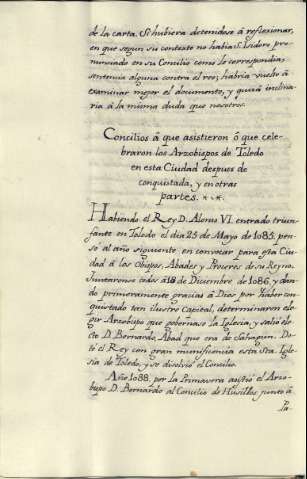 de la carta. Si hubiera detenidose á reflexionar,
en que segun su contexto no habia S. Isidoro pro-
nunciado en su Concilio como le correspondia,
sentencia alguna contra el reo; habria vuelto á
examinar mejor el documento, y quizá inclina-
ria á la misma duda que nosotros.
Concilios á que asistieron ó que cele-
braron los Arzobispos de Toledo
en esta Ciudad despues de
conquistada, y en otras
partes.
Habiendo el Rey D. Alonso VI. entrado triun-
fante en Toledo el dia 25 de Mayo de 1085, pen-
só al año siguiente, en convocar para esta Ciu-
dad á los Obispos, Abades y Proceres de su Reyno.
Juntaronse todos á 18 de Diciembre de 1086, y dan-
do primeramente gracias á Dios por haber con-
quistado tan ilustre Capital, determinaron ele-
gir Arzobispo que gobernase la Iglesia, y salió ele-
cto D. Bernardo Abad que era de Sahagun. Do-
tó el Rey con gran munificencia esta Sta. Igle-
sia de Toledo, y se disolvió el Concilio.
Año 1088. por la Primavera asistió el Arzo-
bispo D. Bernardo al Concilio de Husillos junto á
Pa-